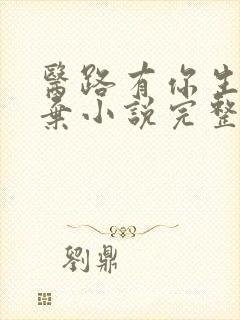 醫路有你生
棄小說完整
劉鼎